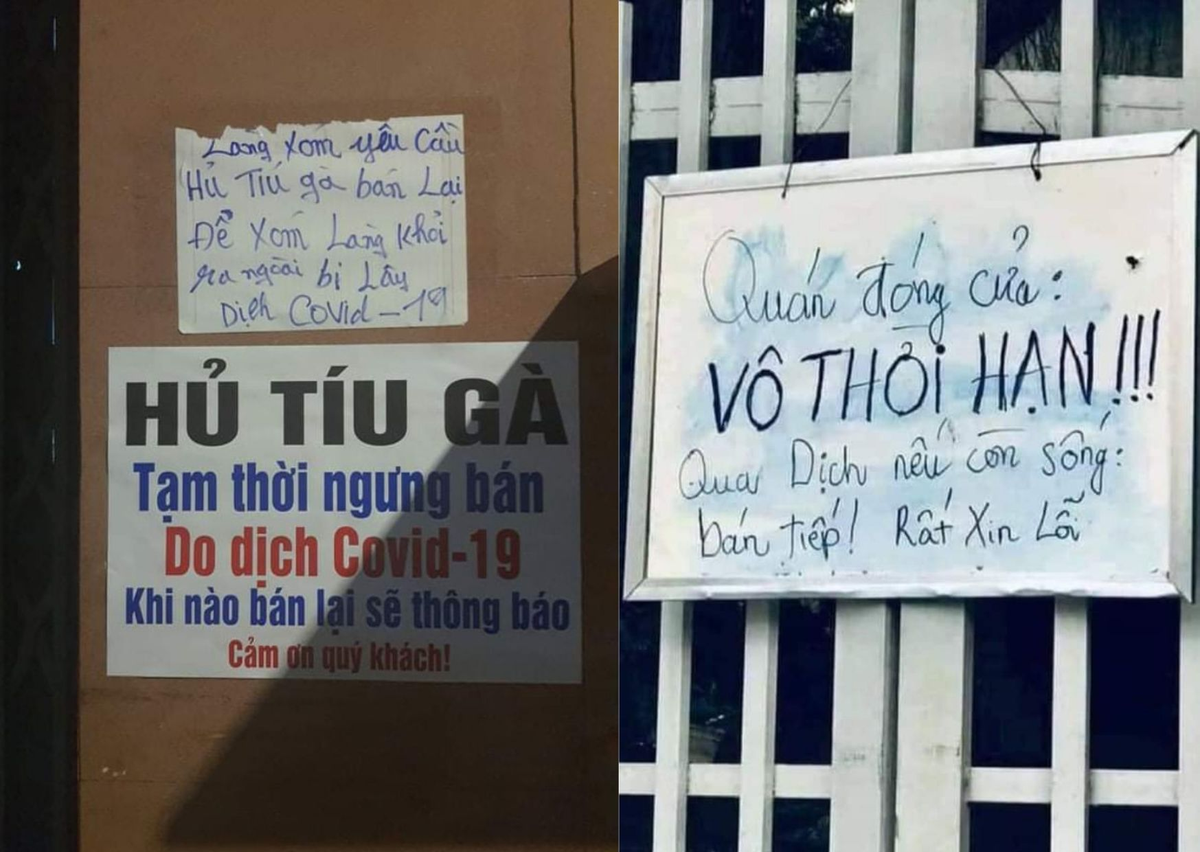 Làng xóm yêu cầu
Hủ Tíu gà bán Lại
Để xóm Làng khỏi
ra ngoài bị Lây
Dịch Covid-19
HỦ TÍU GÀ
Tạm thời ngưng bán
Do dịch Covid-19
Khi nào bán lại sẽ thông báo
Cảm ơn quý khách!
Quán đóng cửa:
VÔ THỜI HẠN!!!
Qua Dịch nếu còn sống:
bán tiếp! Rất Xin Lỗi